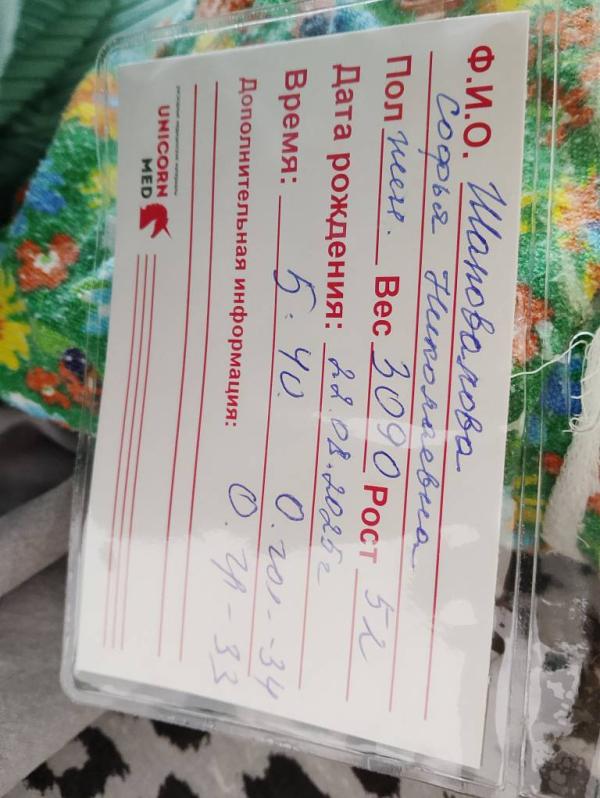 Ф.И.О. Шаповалова
Софья Николаевна
Пол жен. Вес 3090 Рост 52
Дата рождения: 22.08.2025г
Время: 5:40. О. гол - 34
О. гр - 33
Дополнительная информация:
UNICORN
MED